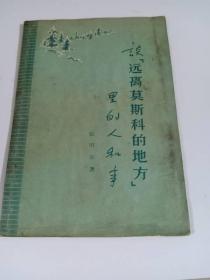 谈「远离莫斯科的地方」
里的人和事
著